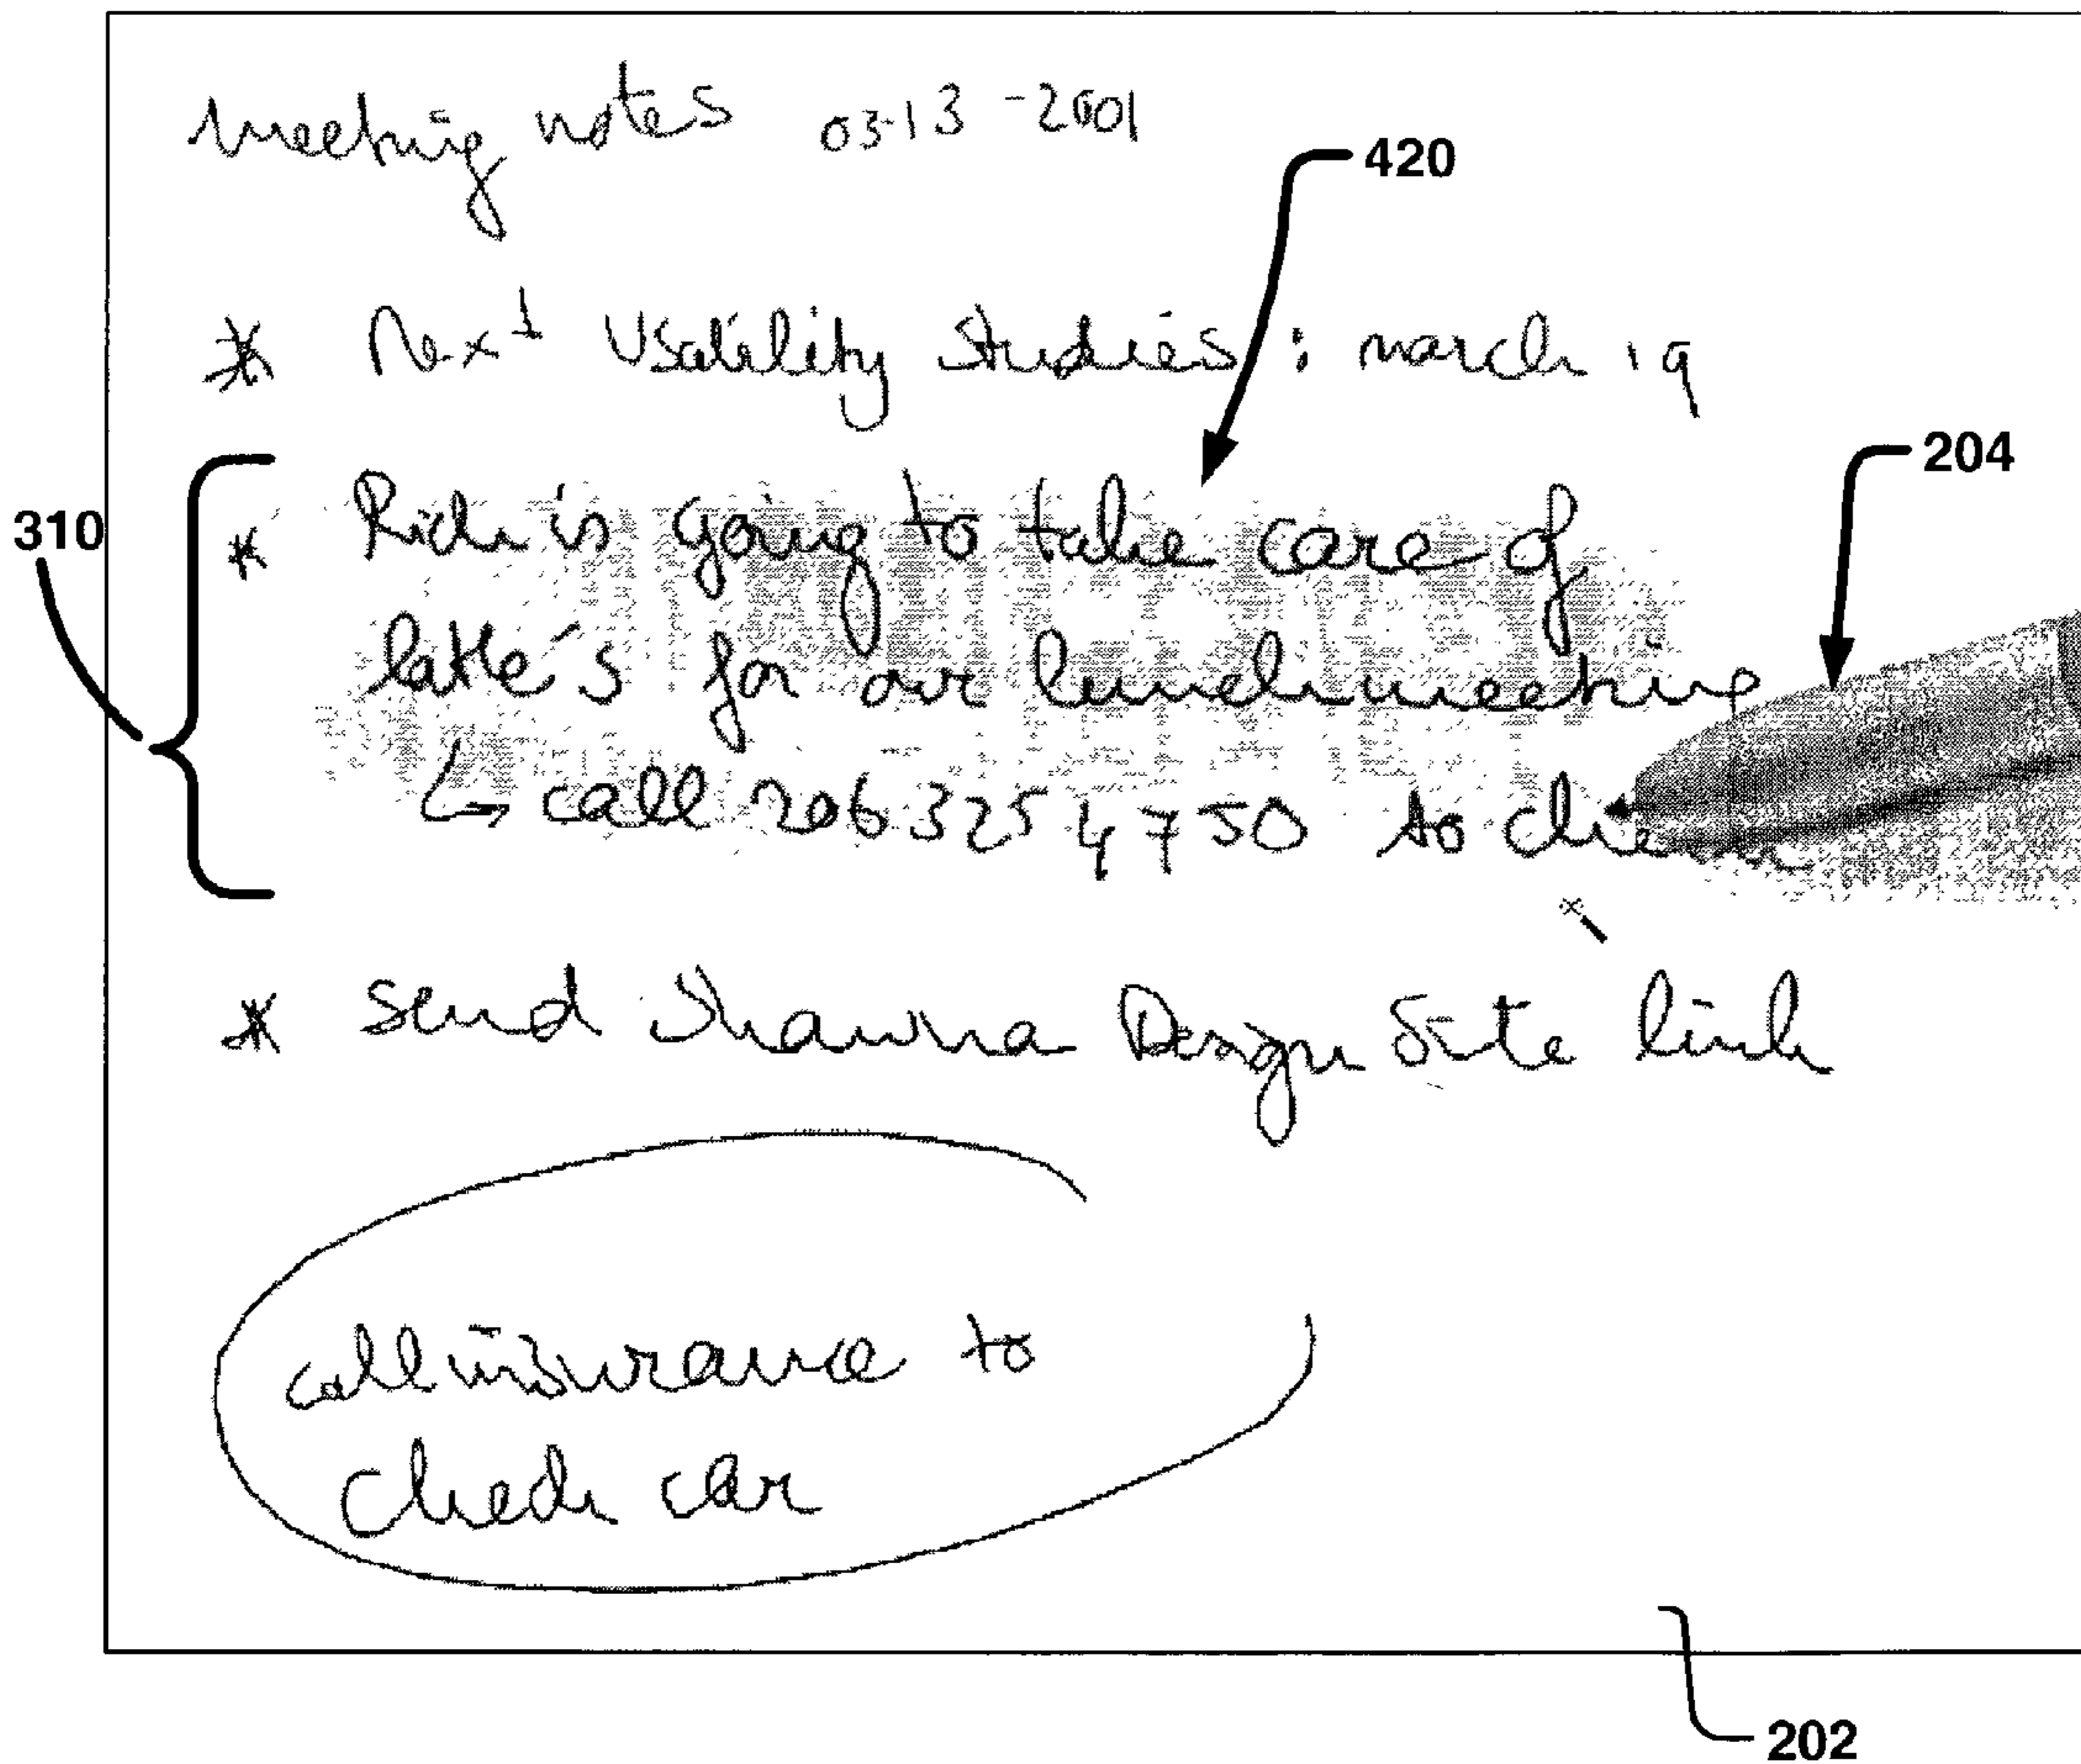 meeting notes 03-13-2001
420
* Next Usability Studies : march 19
204
310
* Rich is going to take care of
latte's for our lunch meeting
↳ call 206 325 4750 to
* Send Shawna Design Site link
call insurance to
check car
202